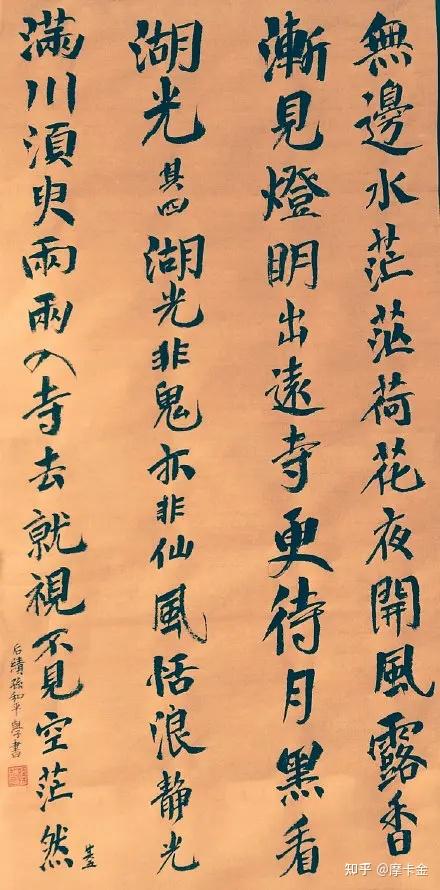 無邊水茫茫荷花夜開風露香
漸見燈明出遠寺更待月黑看
湖光其四湖光非鬼亦非仙風恬浪静光
滿川須臾兩兩入寺去就視不見空茫然
孫和平學書
知乎 @摩卡金